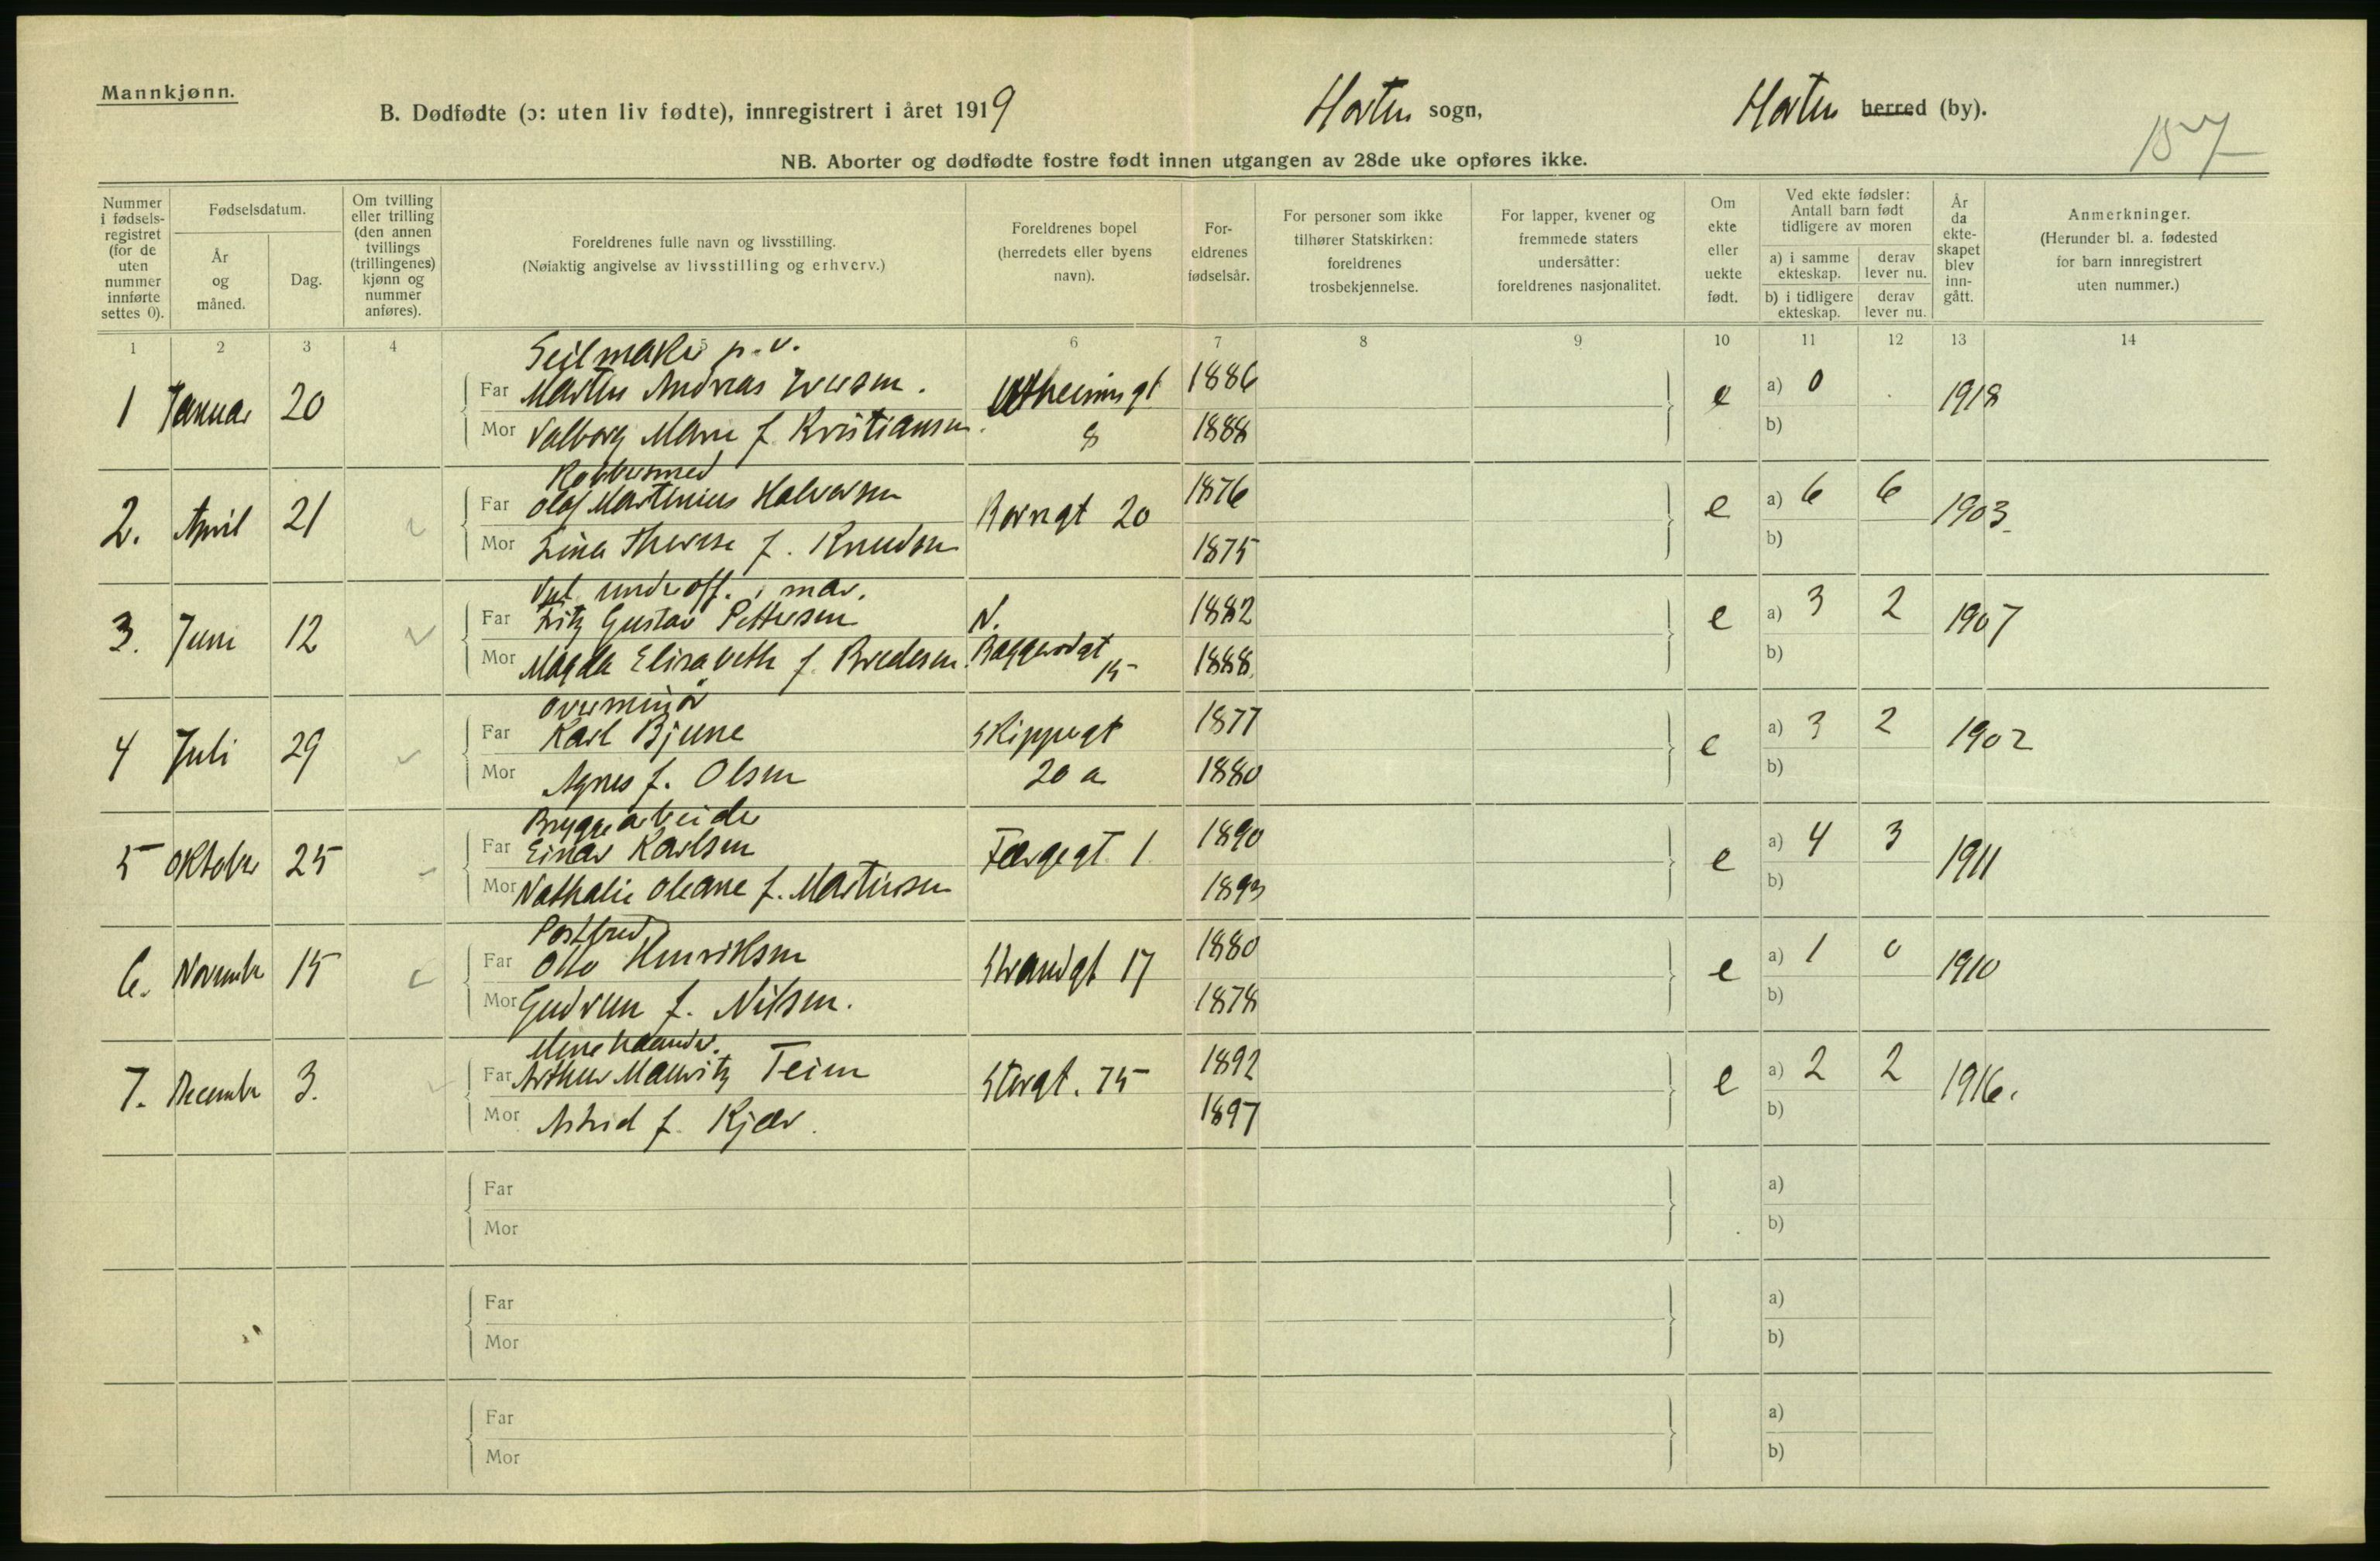 Mannkjønn.
B. Dødfødte (ɔ: uten liv fødte), innregistrert i året 1919 Horten sogn, Horten herred (by).
157
NB. Aborter og dødfødte fostre født innen utgangen av 28de uke opføres ikke.
Nummer i fødsels-registret (for de uten nummer innførte settes 0).
Fødselsdatum.
År og måned.
Dag.
Om tvilling eller trilling (den annen tvillings (trillingenes) kjønn og nummer anføres).
Foreldrenes fulle navn og livsstilling.
(Nøiaktig angivelse av livsstilling og erhverv.)
Foreldrenes bopel (herredets eller byens navn).
For-eldrenes fødselsår.
For personer som ikke tilhører Statskirken: foreldrenes trosbekjennelse.
For lapper, kvener og fremmede staters undersåtter: foreldrenes nasjonalitet.
Om ekte eller uekte født.
Ved ekte fødsler: Antall barn født tidligere av moren
a) i samme ekteskap.
derav lever nu.
b) i tidligere ekteskap.
derav lever nu.
År da ekte-skapet blev inn-gått.
Anmerkninger.
(Herunder bl. a. fødested for barn innregistrert uten nummer.)
1 2 3 4 5 6 7 8 9 10 11 12 13 14
Seilmaker p.v.
1 Januar 20 Far Martin Andreas Iversen. 1886 e a) 0 1918
Mor Valborg Marie f. Kristiansen. 8 1888 b)
Kobbersmed
2. April 21 Far Olaf Martinius Halvorsen Borregt 20 1876 e a) 6 6 1903
Mor Lina Therese f. Knudsen 1875 b)
underoff. i mar.
3. Juni 12 Far Fritz Gustav Pettersen N. 1882 e a) 3 2 1907
Mor Magda Elisabeth f. Bredesen. Baggerødgt 15 1888 b)
Overminør
4 Juli 29 Far Karl Bjune Skippergt 1877 e a) 3 2 1902
Mor Agnes f. Olsen 20 a 1880 b)
Bryggearbeider
5 Oktober 25 Far Einar Karlsen Færgegt. 1 1890 e a) 4 3 1911
Mor Nathalie Oleane f. Martinsen 1893 b)
Postbud
6. November 15 Far Otto Henriksen Strandgt 17 1880 e a) 1 0 1910
Mor Gudrun f. Nilsen. 1878 b)
7. December 3. Far Arthur Mauritz Teim Storgt. 75 1892 e a) 2 2 1916.
Mor Astrid f. Kjær. 1897 b)
Far a)
Mor b)
Far a)
Mor b)
Far a)
Mor b)